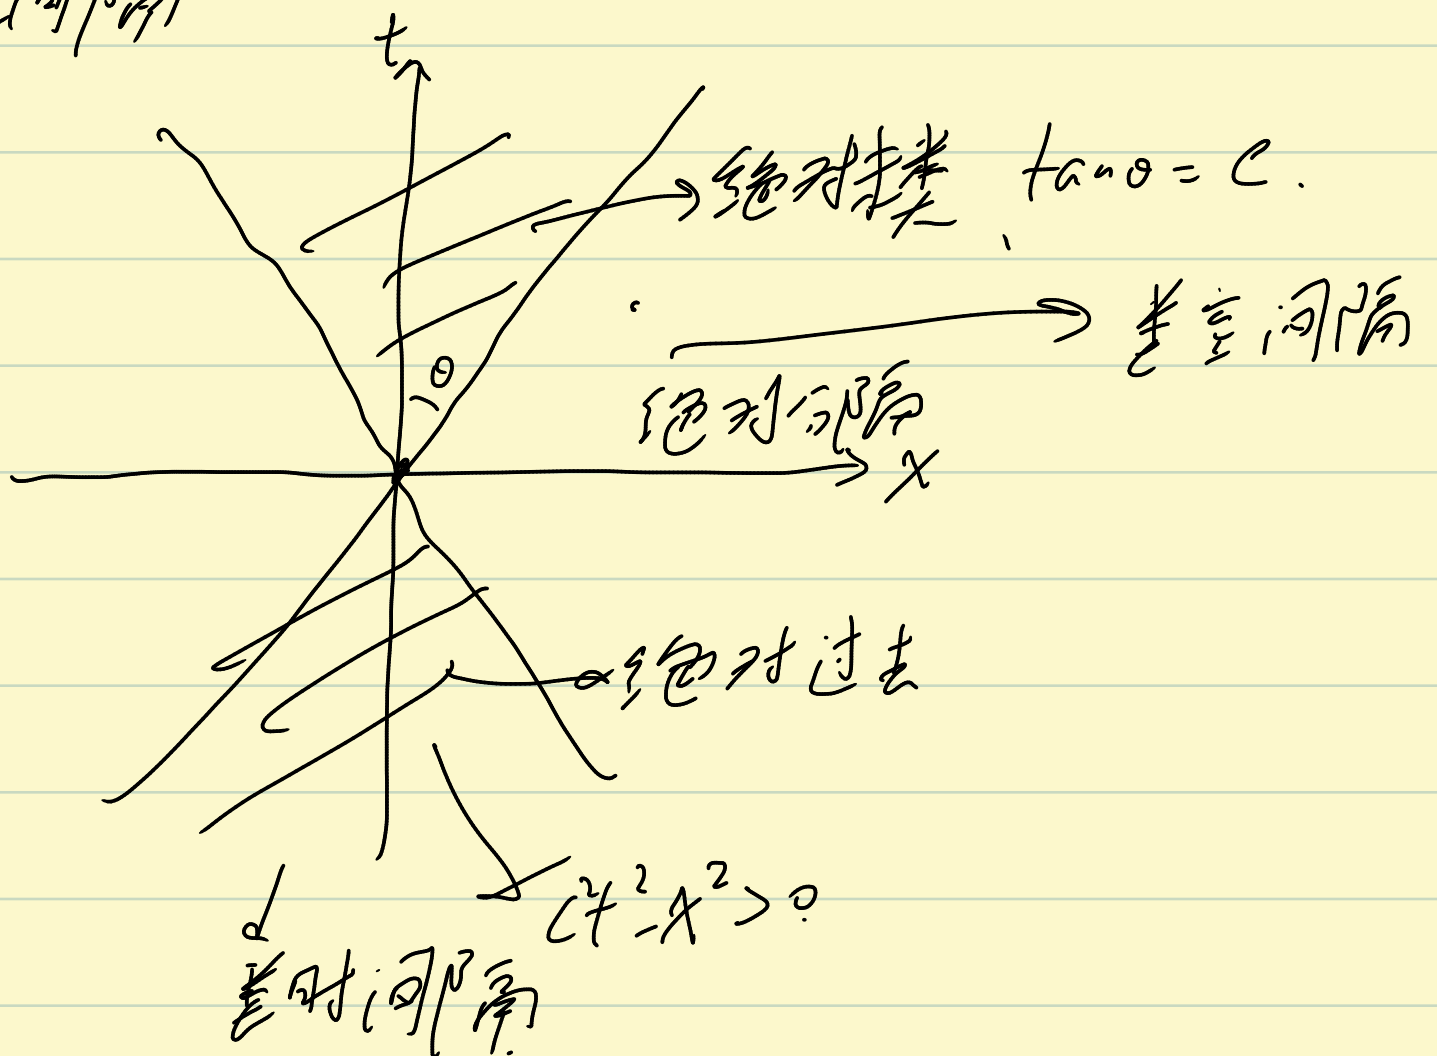 间隔
t
绝对未来 tanθ = C.
类空间隔
θ
绝对间隔
x
绝对过去
c²t²-x²>0
类时间隔